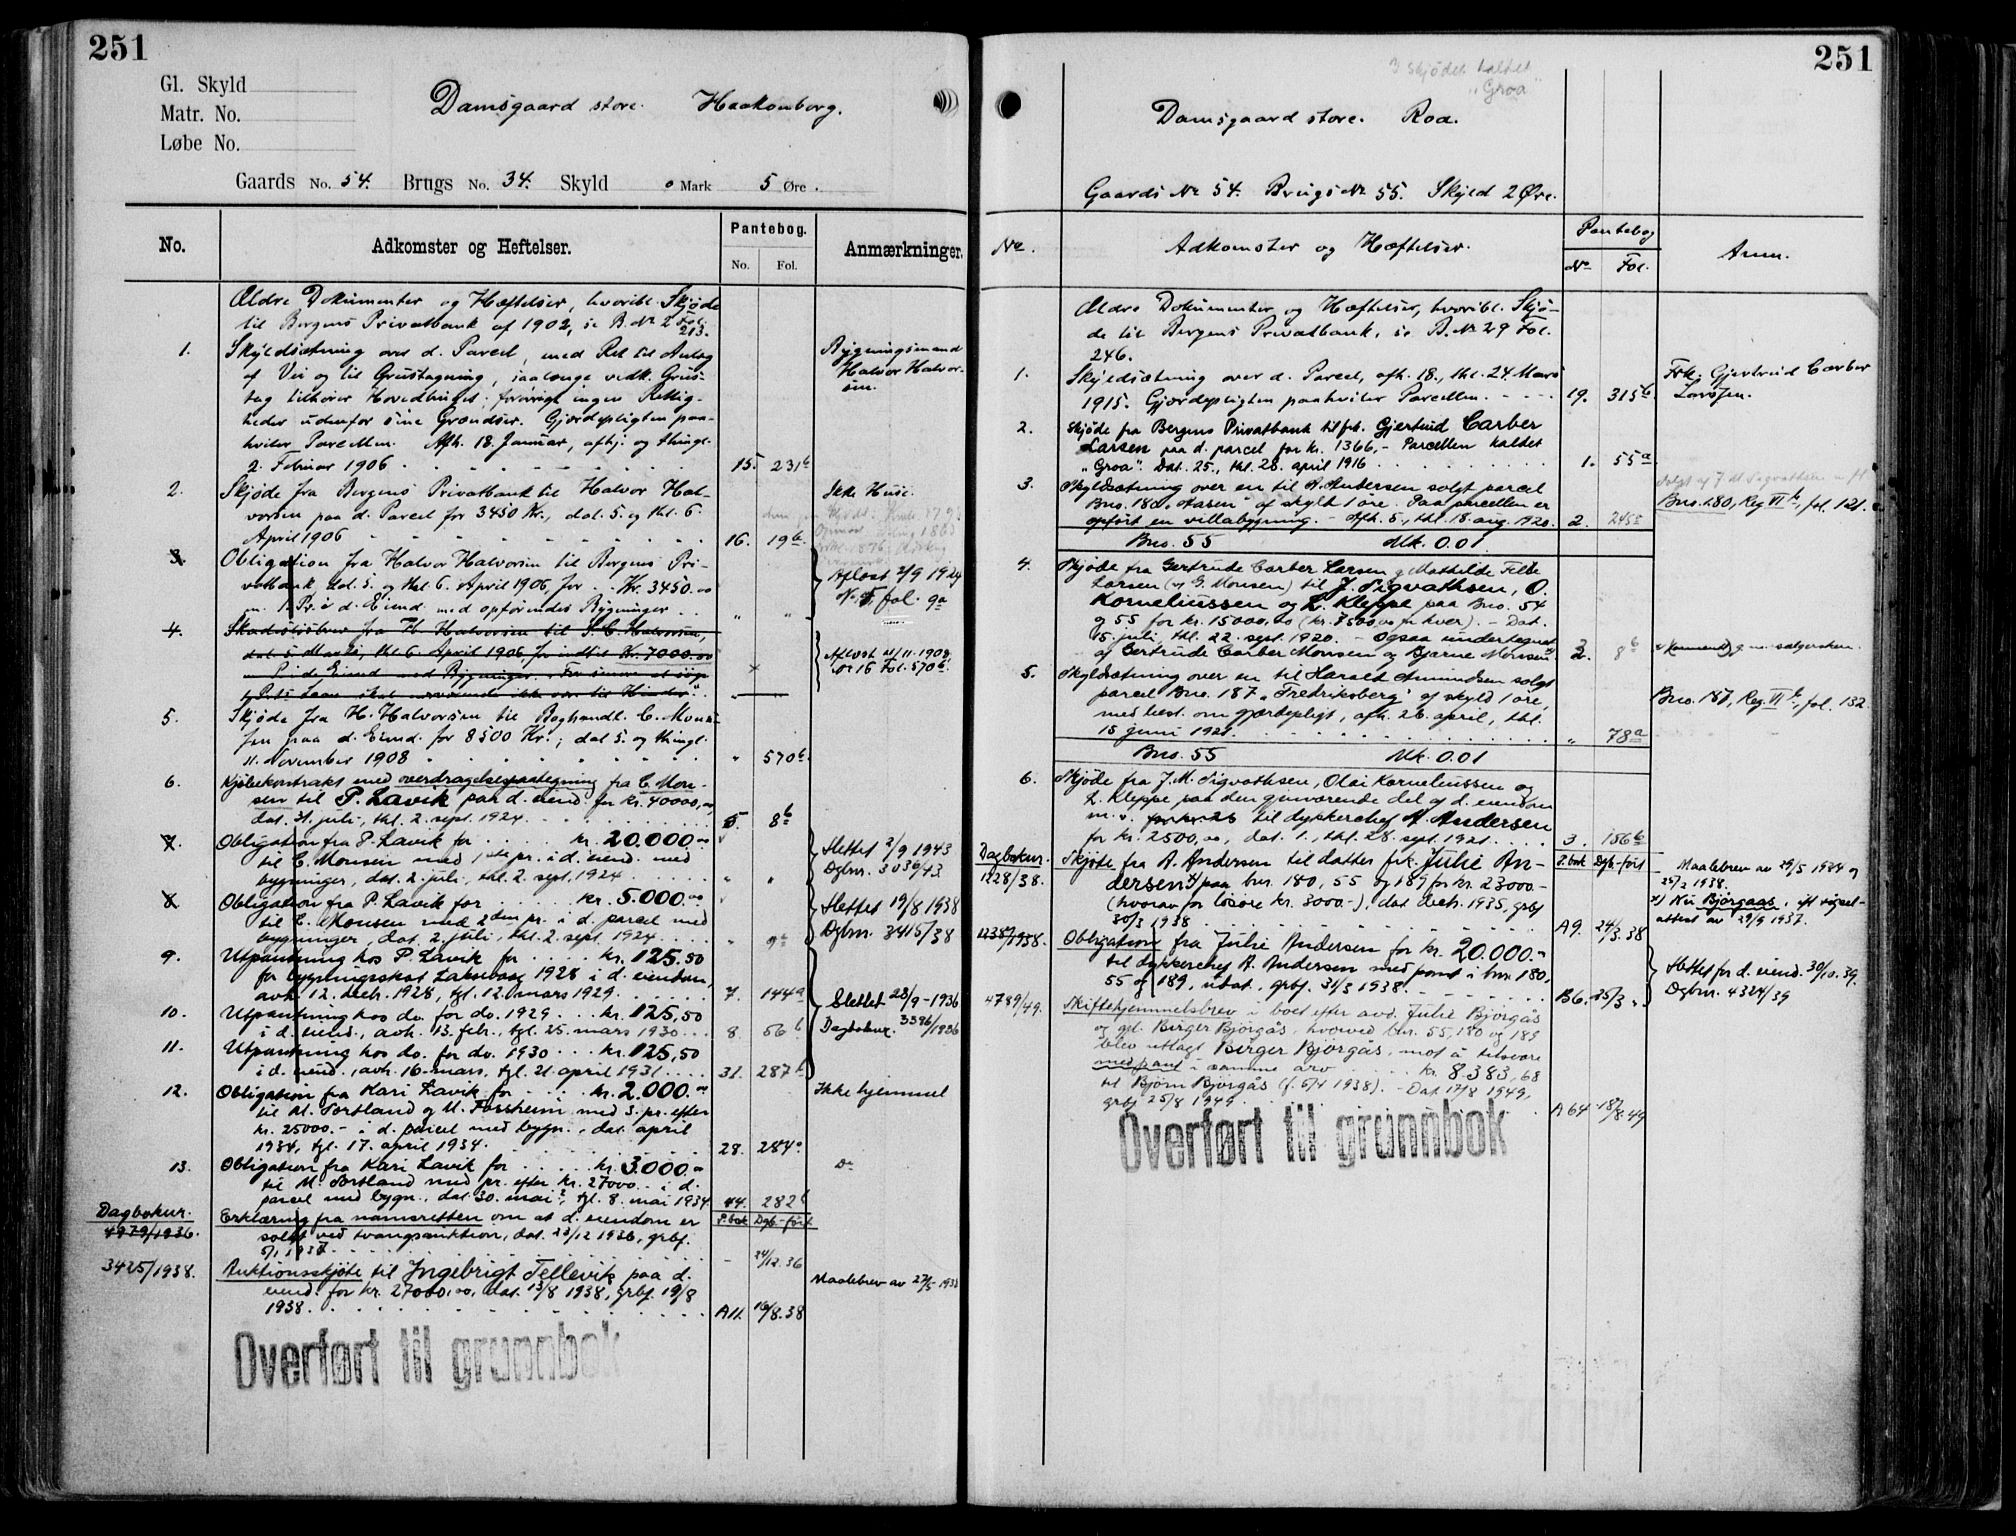 251
Gl. Skyld
Matr. No.
Løbe No.
Damsgaard store. Haakonborg.
Gaards No. 54. Brugs No. 34. Skyld 0 Mark 5 Øre.
No. Adkomster og Heftelser. Pantebog. No. Fol. Anmærkninger.
Ældre Dokumenter og Hæftelser, hvoribl. Skjøde
til Bergens Privatbank af 1902, se B. No 2 Fol. 213.
1. Skyldsætning over d. Parcel, med Ret til Anlæg
af Vei og til Grustagning, saalænge vedk. Grus-
tag tilhører Hovedbruget; forøvrigt ingen Rettig-
heder udenfor sine Grændser. Gjærdepligten paa-
hviler Parcellen. Afh. 18. Januar, afhj. og thingl.
2. Februar 1906 15. 231b
Bygningsmand
Halvor Halvor-
sen.
2. Skjøde fra Bergens Privatbank til Halvor Hal-
vorsen paa d. Parcel for 3450 Kr., dat. 5. og thl. 6.
April 1906 16. 19b
Ikke Huse.
3. Obligation fra Halvor Halvorsen til Bergens Pri-
vatbank, dat. 5. og thl. 6. April 1906, for Kr. 3450.00
m. 1. Pr. i d. Eiend. med opførendes Bygninger " "
Aflæst 2/9 1924
N. 5 fol. 9a
4. Skadesløsbrev fra H. Halvorsen til S. C. Halvorsen,
dat. 5 Marts, thl. 6. April 1906, for indtil Kr. 7000.00
Aflæst 11/11 1908
No 16 Fol. 570b
5. Skjøde fra H. Halvorsen til Boghandl. C. Mon-
sen paa d. Eiend. for 8500 Kr.; dat 5. og thingl.
11. November 1908 " 570b
6. Kjøbekontrakt med overdragelsespaategning fra C. Mon-
sen til P. Lavik paa d. eiend. for kr. 40000,00
dat. 31. juli, thl. 2. sept. 1924 5. 8b
7. Obligation fra P. Lavik for kr. 20.000.00
til C. Monsen med 1ste pr. i d. eiend. med
bygninger, dat. 2. juli, thl. 2. sept. 1924 " "
Slettet 2/9 1943
Dgbnr. 3036/43
8. Obligation fra P. Lavik for kr. 5.000.00
til C. Monsen med 2den pr. i d. parcel med
bygninger, dat. 2. juli, thl. 2. sept. 1924 " 9a
Slettet 19/8 1938
Dgbnr. 3415/38
9. Utpantning hos P. Lavik for kr. 125.50
for bygningsskat Laksevaag 1928 i d. eiendom,
avh. 12. decb. 1928, tgl. 12. mars 1929 7. 144a
Slettet 28/9-1936
Dagboknr. 3396/1936
10. Utpantning hos do. for do. 1929 kr. 125,50
i d. eiend., avh. 13. febr., tgl. 25. mars 1930 8. 56b
11. Utpantning hos do. for do. 1930 kr. 125,50
i d. eiend., avh. 16. mars, tgl. 21. april 1931 31. 287b
12. Obligation fra Kari Lavik for kr. 2.000.00
til M. Sortland og M. Forsheim med 3. pr. efter
kr. 25000.- i d. parcel med bygn., dat. april
1934, tgl. 17. april 1934. 28. 284a
Ikke hjemmel
13. Obligation fra Kari Lavik for kr. 3.000.00
til M. Sortland med pr. efter kr. 27000.- i d.
parcel med bygn., dat. 30. mai?, tgl. 8. mai 1934 44. 282b
Do
Dagboknr. P.bok Dgb.-ført
4979/1936. Erklæring fra namsretten om at d. eiendom er
solgt ved tvangsauktion, dat. 23/12 1936, grbf.
5/1 1937 - 24/12.36
3425/1938. Auktionsskjøte til Ingebrigt Tellevik paa d.
eiend. for kr. 27000,00, dat. 13/8 1938, grbf. 19/8
1938. A11. 16/8.38
Maalebrev av 27/5-1938
Overført til grunnbok
251
3 skjødet kaldet
"Groa"
Damsgaard store. Roa.
Gaards No 54. Brugs No 55. Skyld 2 Øre.
No. Adkomster og Hæftelser. Pantebog No Fol. Anm.
Ældre Dokumenter og Hæftelser, hvoribl. Skjø-
de til Bergens Privatbank, se B. No 29 Fol.
246.
1. Skyldsætning over d. Parcel, afh. 18., thl. 24. Mars
1915. Gjærdepligten paahviler Parcellen. 19. 315b
Frk. Gjertrud Carber
Larsen.
2. Skjøde fra Bergens Privatbank til frk. Gjertrud Carber
Larsen paa d. parcel for kr. 1366,- Parcellen kaldet
"Groa". Dat. 25., thl. 28. april 1916 1. 55a
3. Skyldsætning over en til A. Andersen solgt parcel
Bno. 180 "Aasen" af skyld 1 øre. Paa parcellen er
opført en villabygning. - Afh. 5., thl. 18. aug. 1920. 2. 245a
Bno. 180, Reg VI b, fol. 121.
Bno. 55 Mk. 0.01.
4. Skjøde fra Gertrude Carber Larsen og Mathilde Felle
Larsen (og G. Monsen) til J. Sigvathsen, O.
Korneliussen og L. Kleppe paa Bno. 54
og 55 for kr. 15000,00 (kr. 7500,00 for hver). - Dat.
15. juli, thl. 22. sept. 1920. - Ogsaa undertegnet
af Gertrude Carber Monsen og Bjarne Monsen 2. 8b
5. Skyldsætning over en til Harald Amundsen solgt
parcel Bno. 187 "Fredriksberg" af skyld 1 øre,
med best. om gjærdepligt, afh. 26. april, thl.
15 juni 1921. " 78a
Bno. 187, Reg. VI b, fol. 132
Bno. 55 Mk. 0.01
6. Skjøde fra J. M. Sigvathsen, Olai Korneliussen og
L. Kleppe paa den gjenværende del af d. eiendom
m. v. til dykkerchef A. Andersen
for kr. 2500,00, dat. 1., thl. 28. sept. 1921 3. 156b
Dagboknr. P.bok Dgb.-ført
1228/38. Skjøte fra A. Andersen til datter frk. Julie An-
dersen x) paa bnr. 180, 55 og 189 for kr. 23000.-
(hvorav for løsøre kr. 3000.-), dat. decb. 1935, grbf
30/3 1938 A9. 24/3.38
Maalebrev av 29/5 1924 og
25/2 1938.
x) Nu Bjørgaas, eft. vigsel-
attest av 29/9 1937.
1238/1938. Obligation fra Julie Andersen for kr. 20.000.-
til dykkerchef A. Andersen med pant i bnr. 180,
55 og 189, udat., grbf. 31/3 1938. B6. 25/3
Slettet for d. eiend. 30/10.39.
Dgbnr. 4324/39
4789/49. Skiftehjemmelsbrev i boet efter avd. Julie Bjørgås
og gjl. Birger Bjørgås, hvorved bnr. 55, 180 og 189
blev utlagt Birger Bjørgås, mot å tilsvare
med pant i samme arv kr. 8.383,68
til Bjørn Bjørgås (f. 5/4 1938). - Dat. 17/8 1949,
grbf 25/8 1949 A64 18/8.49
Overført til grunnbok